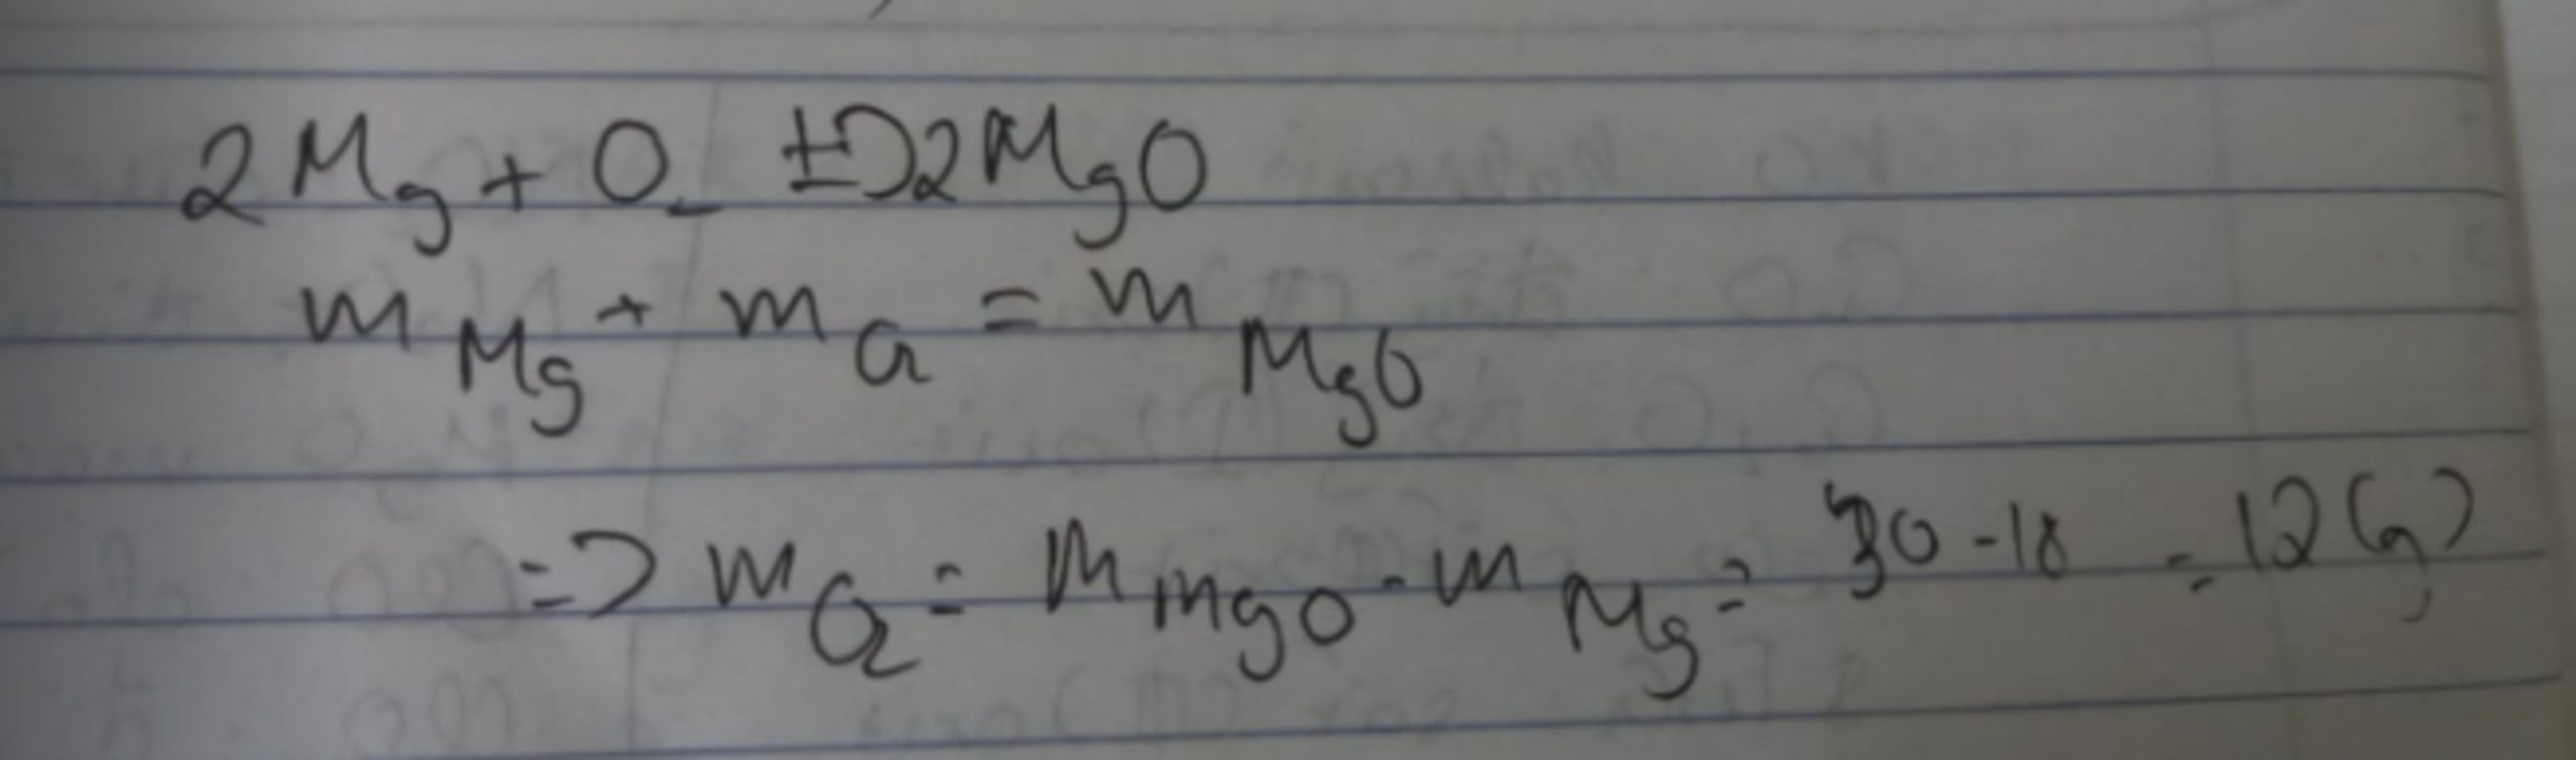 2Mg + O2 => 2MgO
m Mg + m O2 = m MgO
=> m O2 = m MgO - m Mg = 30 - 18 = 12 (g)